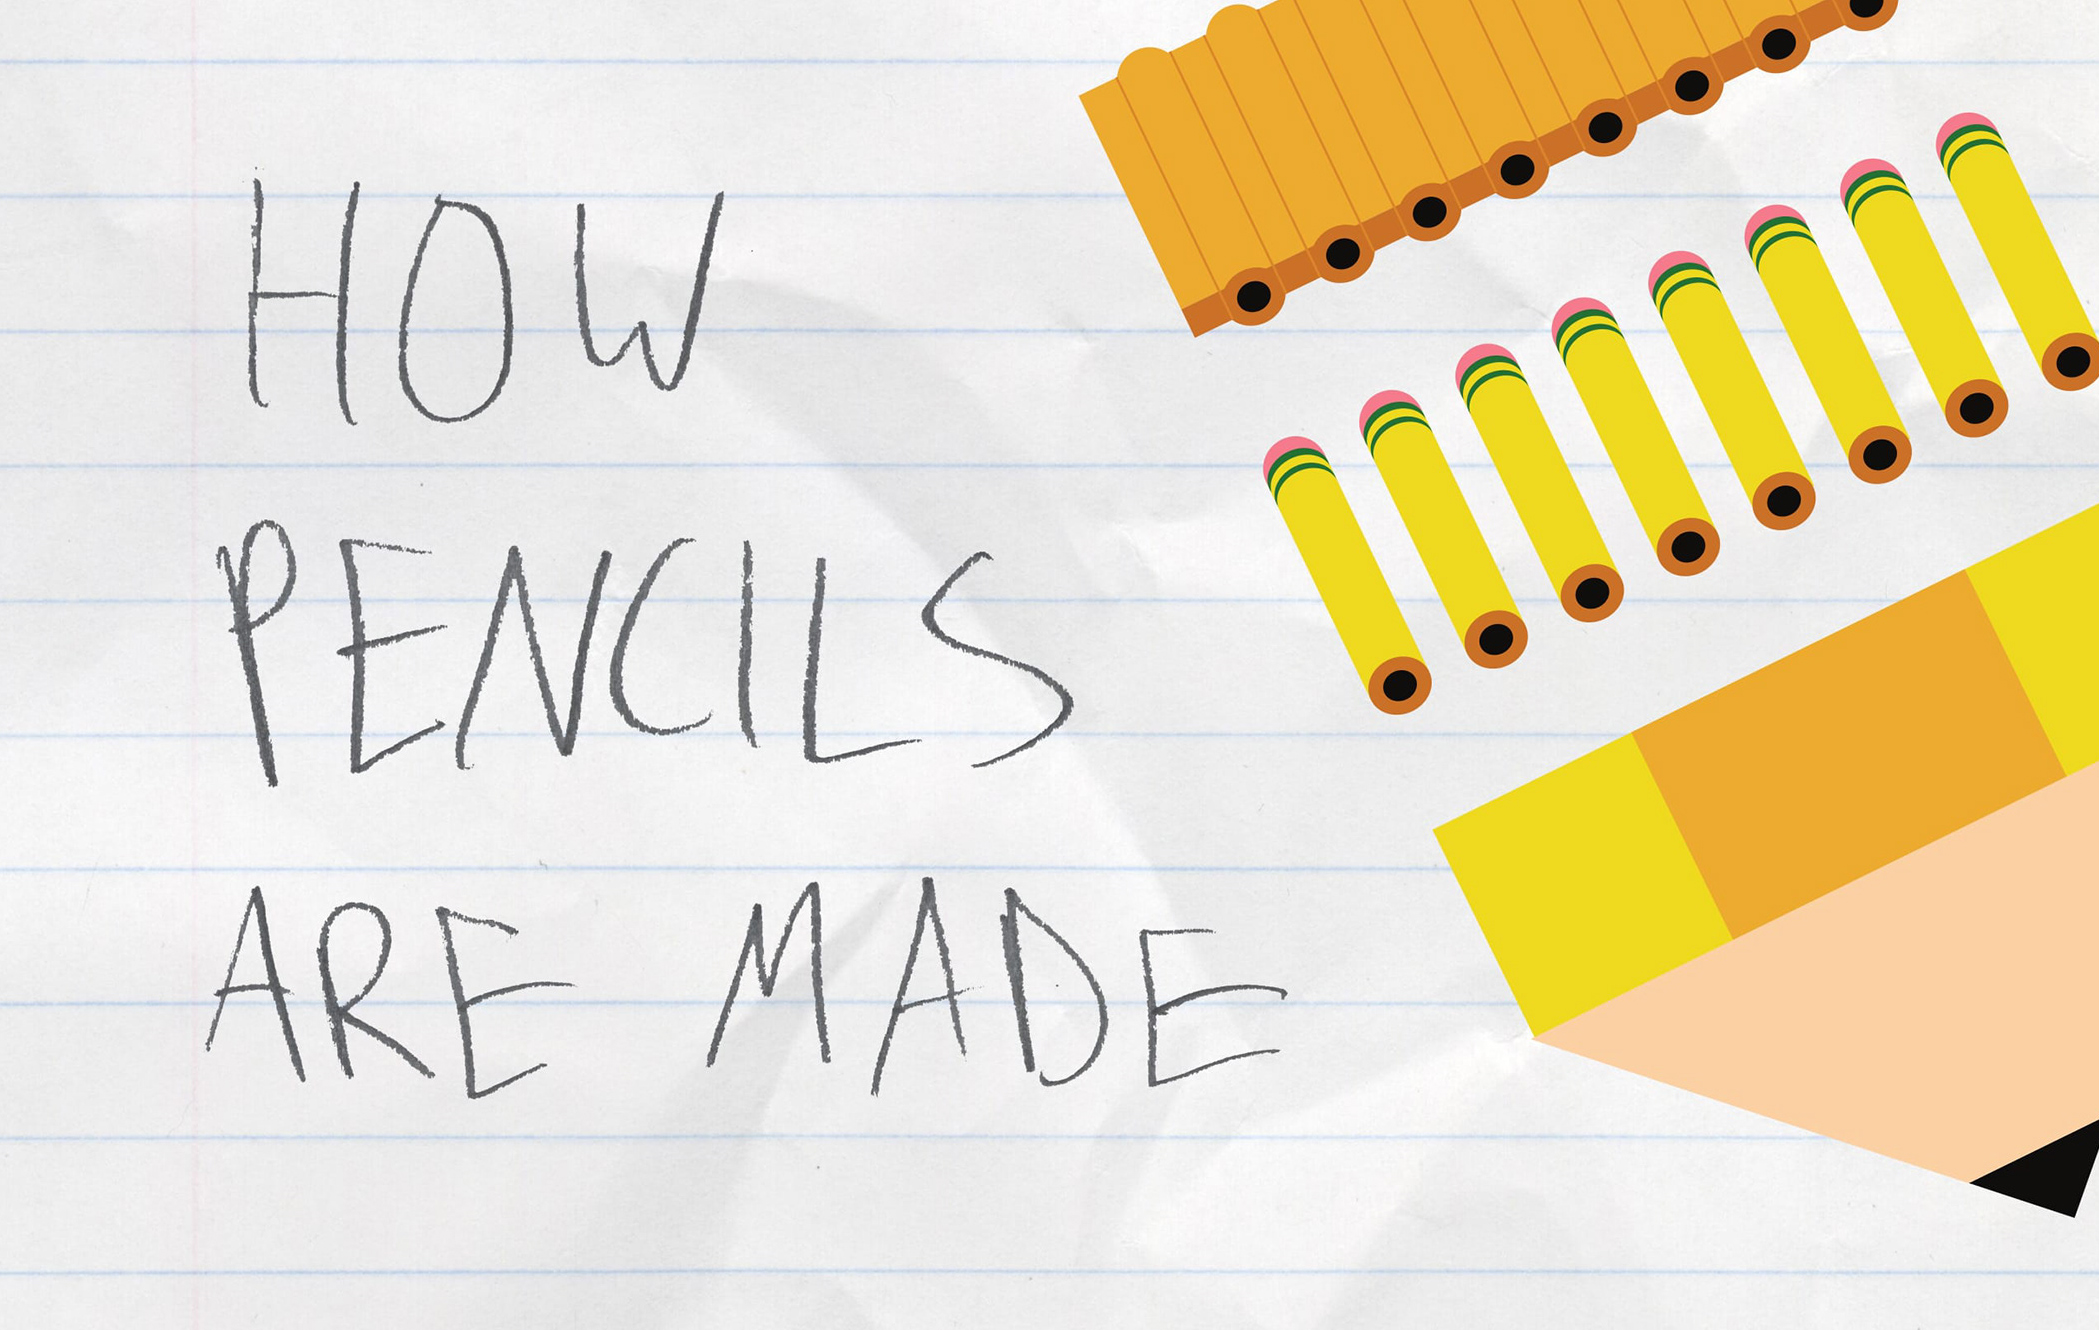 HOW
PENCILS
ARE MADE